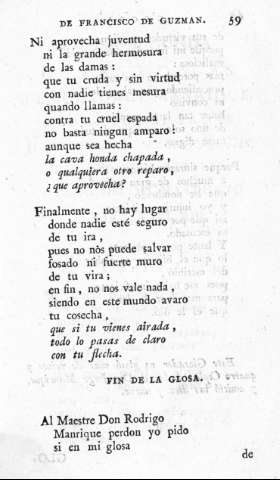 DE FRANCISCO DE GUZMAN. 59
Ni aprovecha juventud
ni la grande hermosura
de las damas :
que tu cruda y sin virtud
con nadie tienes mesura
quando llamas :
contra tu cruel espada
no basta ningun amparo !
aunque sea hecha
la cava honda chapada ,
o qualquiera otro reparo ,
¿ que aprovecha ?
Finalmente , no hay lugar
donde nadie esté seguro
de tu ira ,
pues no nòs puede salvar
fosado ni fuerte muro
de tu vira ;
en fin , no nos vale nada ,
siendo en este mundo avaro
tu cosecha ,
que si tu vienes airada ,
todo lo pasas de claro
con tu flecha.
FIN DE LA GLOSA.
Al Maestre Don Rodrigo
Manrique perdon yo pido
si en mi glosa
de